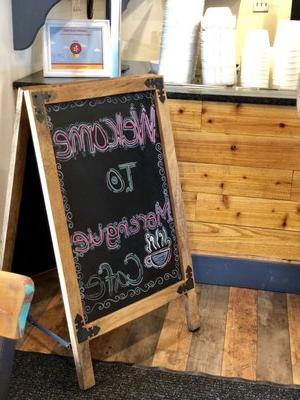 Welcome
To
Merengue
Café